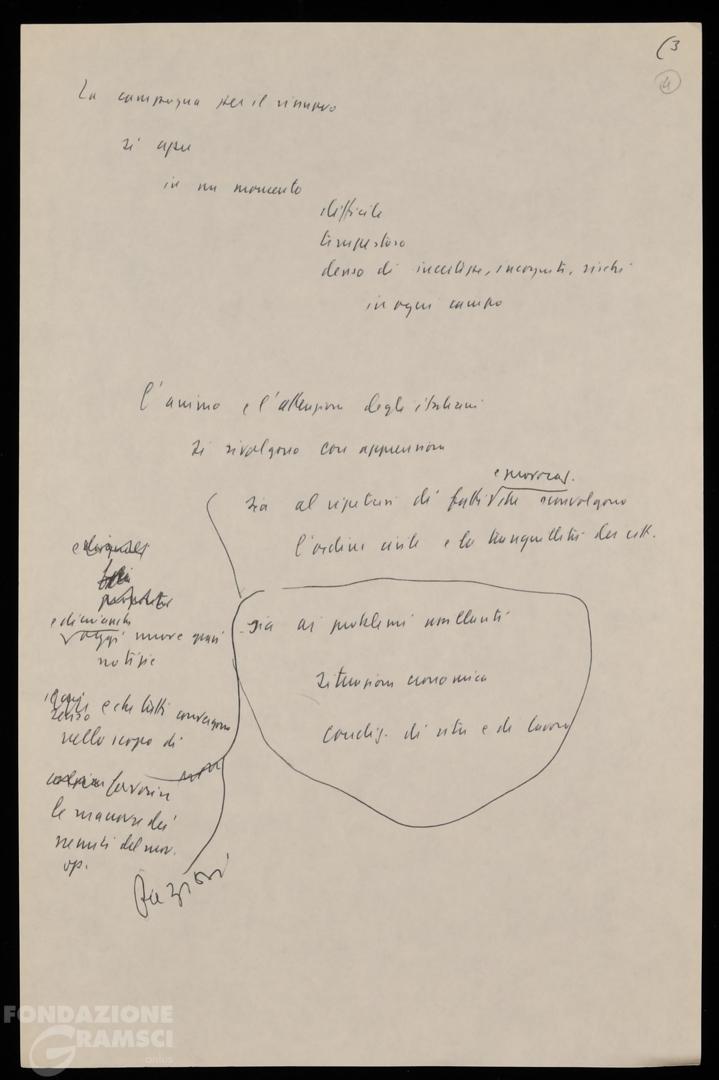 (3
4
La campagna per il rinnovo
si apre
in un momento
difficile
tempestoso
denso di incertezze, incognite, rischi
in ogni campo
l'animo e l'attenzione degli italiani
si rivolgono con apprensione
sia al ripetersi di fatti che sconvolgono
l'ordine civile e la tranquillità dei citt.
sia ai problemi assillanti
situazione economica
condiz. di vita e di lavoro
e di cui anche
oggi nuove gravi
notizie
senso e che tutti convergono
nello scopo di
favorire
le manovre dei
nemici del mov.
op.
FONDAZIONE
GRAMSCI
onlus